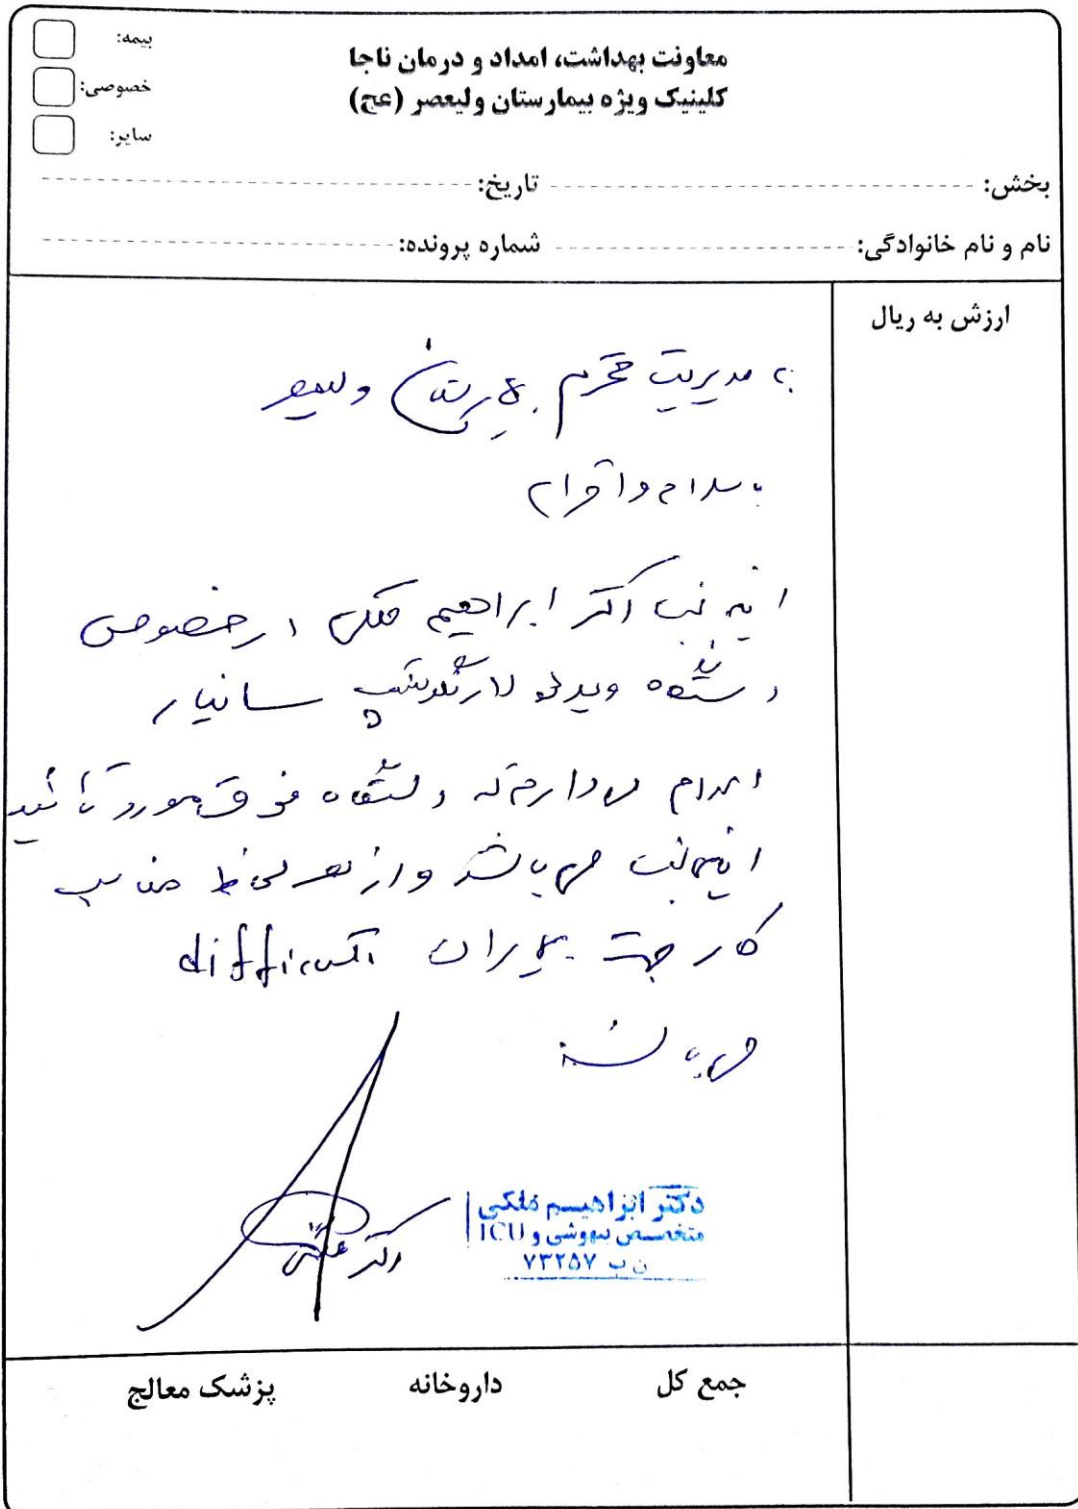 بیمه:
خصوصی:
سایر:
معاونت بهداشت، امداد و درمان ناجا
کلینیک ویژه بیمارستان ولیعصر (عج)
بخش: تاریخ:
نام و نام خانوادگی: شماره پرونده:
ارزش به ریال
به مدیریت محترم بیمارستان ولیعصر
با سلام و احترام
اینجانب دکتر ابراهیم ملکی در خصوص
دستگاه ویدئو لارنگوسکوپ سانیار
اعلام می دارم که دستگاه فوق مورد تائید
اینجانب می باشد و از هر لحاظ مناسب
کار جهت بیماران difficult
می باشد
دکتر ملکی
دکتر ابراهیم ملکی
متخصص بیهوشی و ICU
ن پ ۷۳۲۵۷
جمع کل داروخانه پزشک معالج